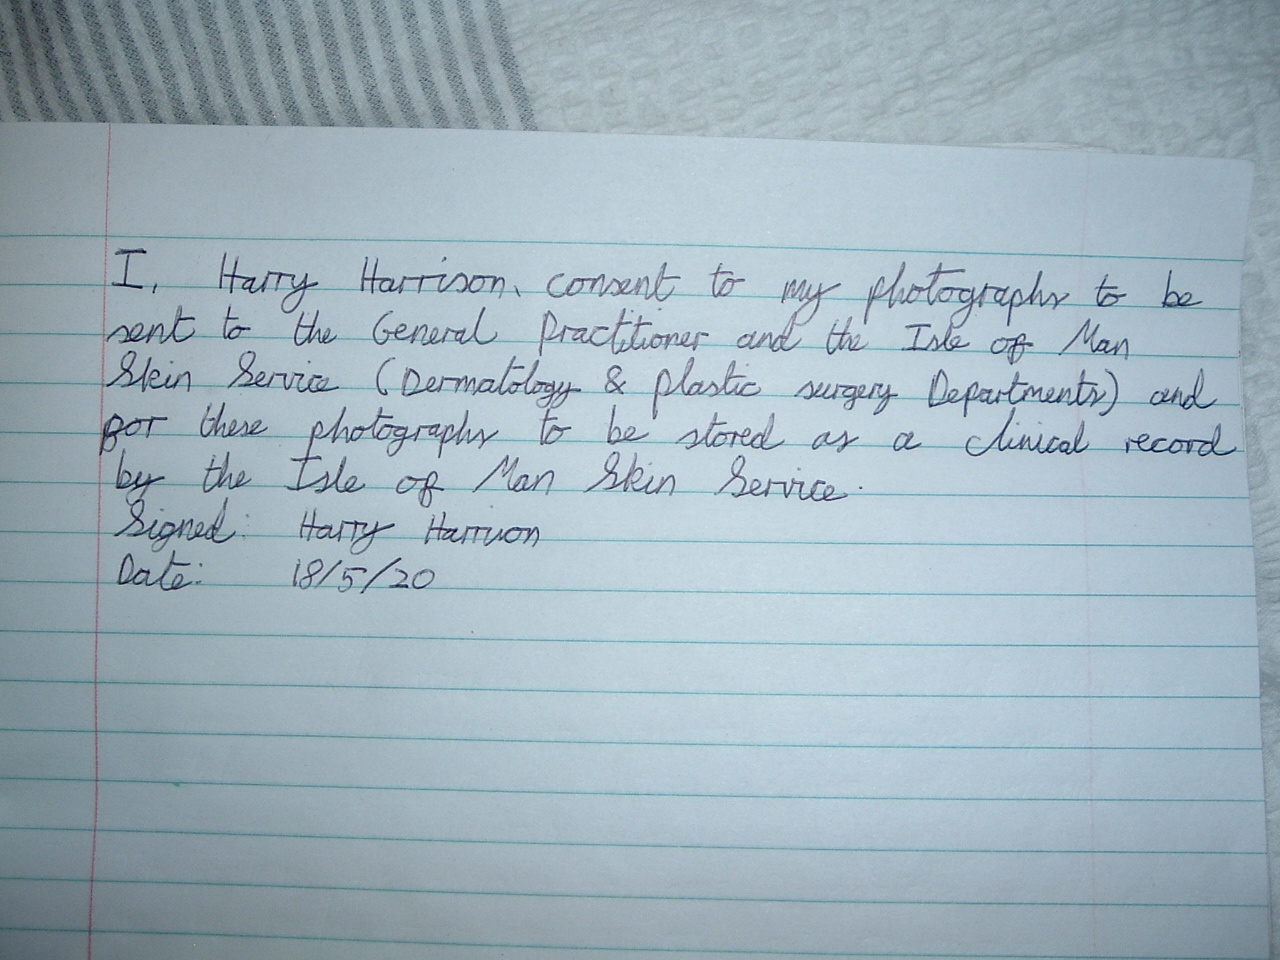 I, Harry Harrison, consent to my photographs to be
sent to the General Practitioner and the Isle of Man
Skin Service (Dermatology & plastic surgery Departments) and
for these photographs to be stored as a clinical record
by the Isle of Man Skin Service.
Signed: Harry Harrison
Date: 18/5/20